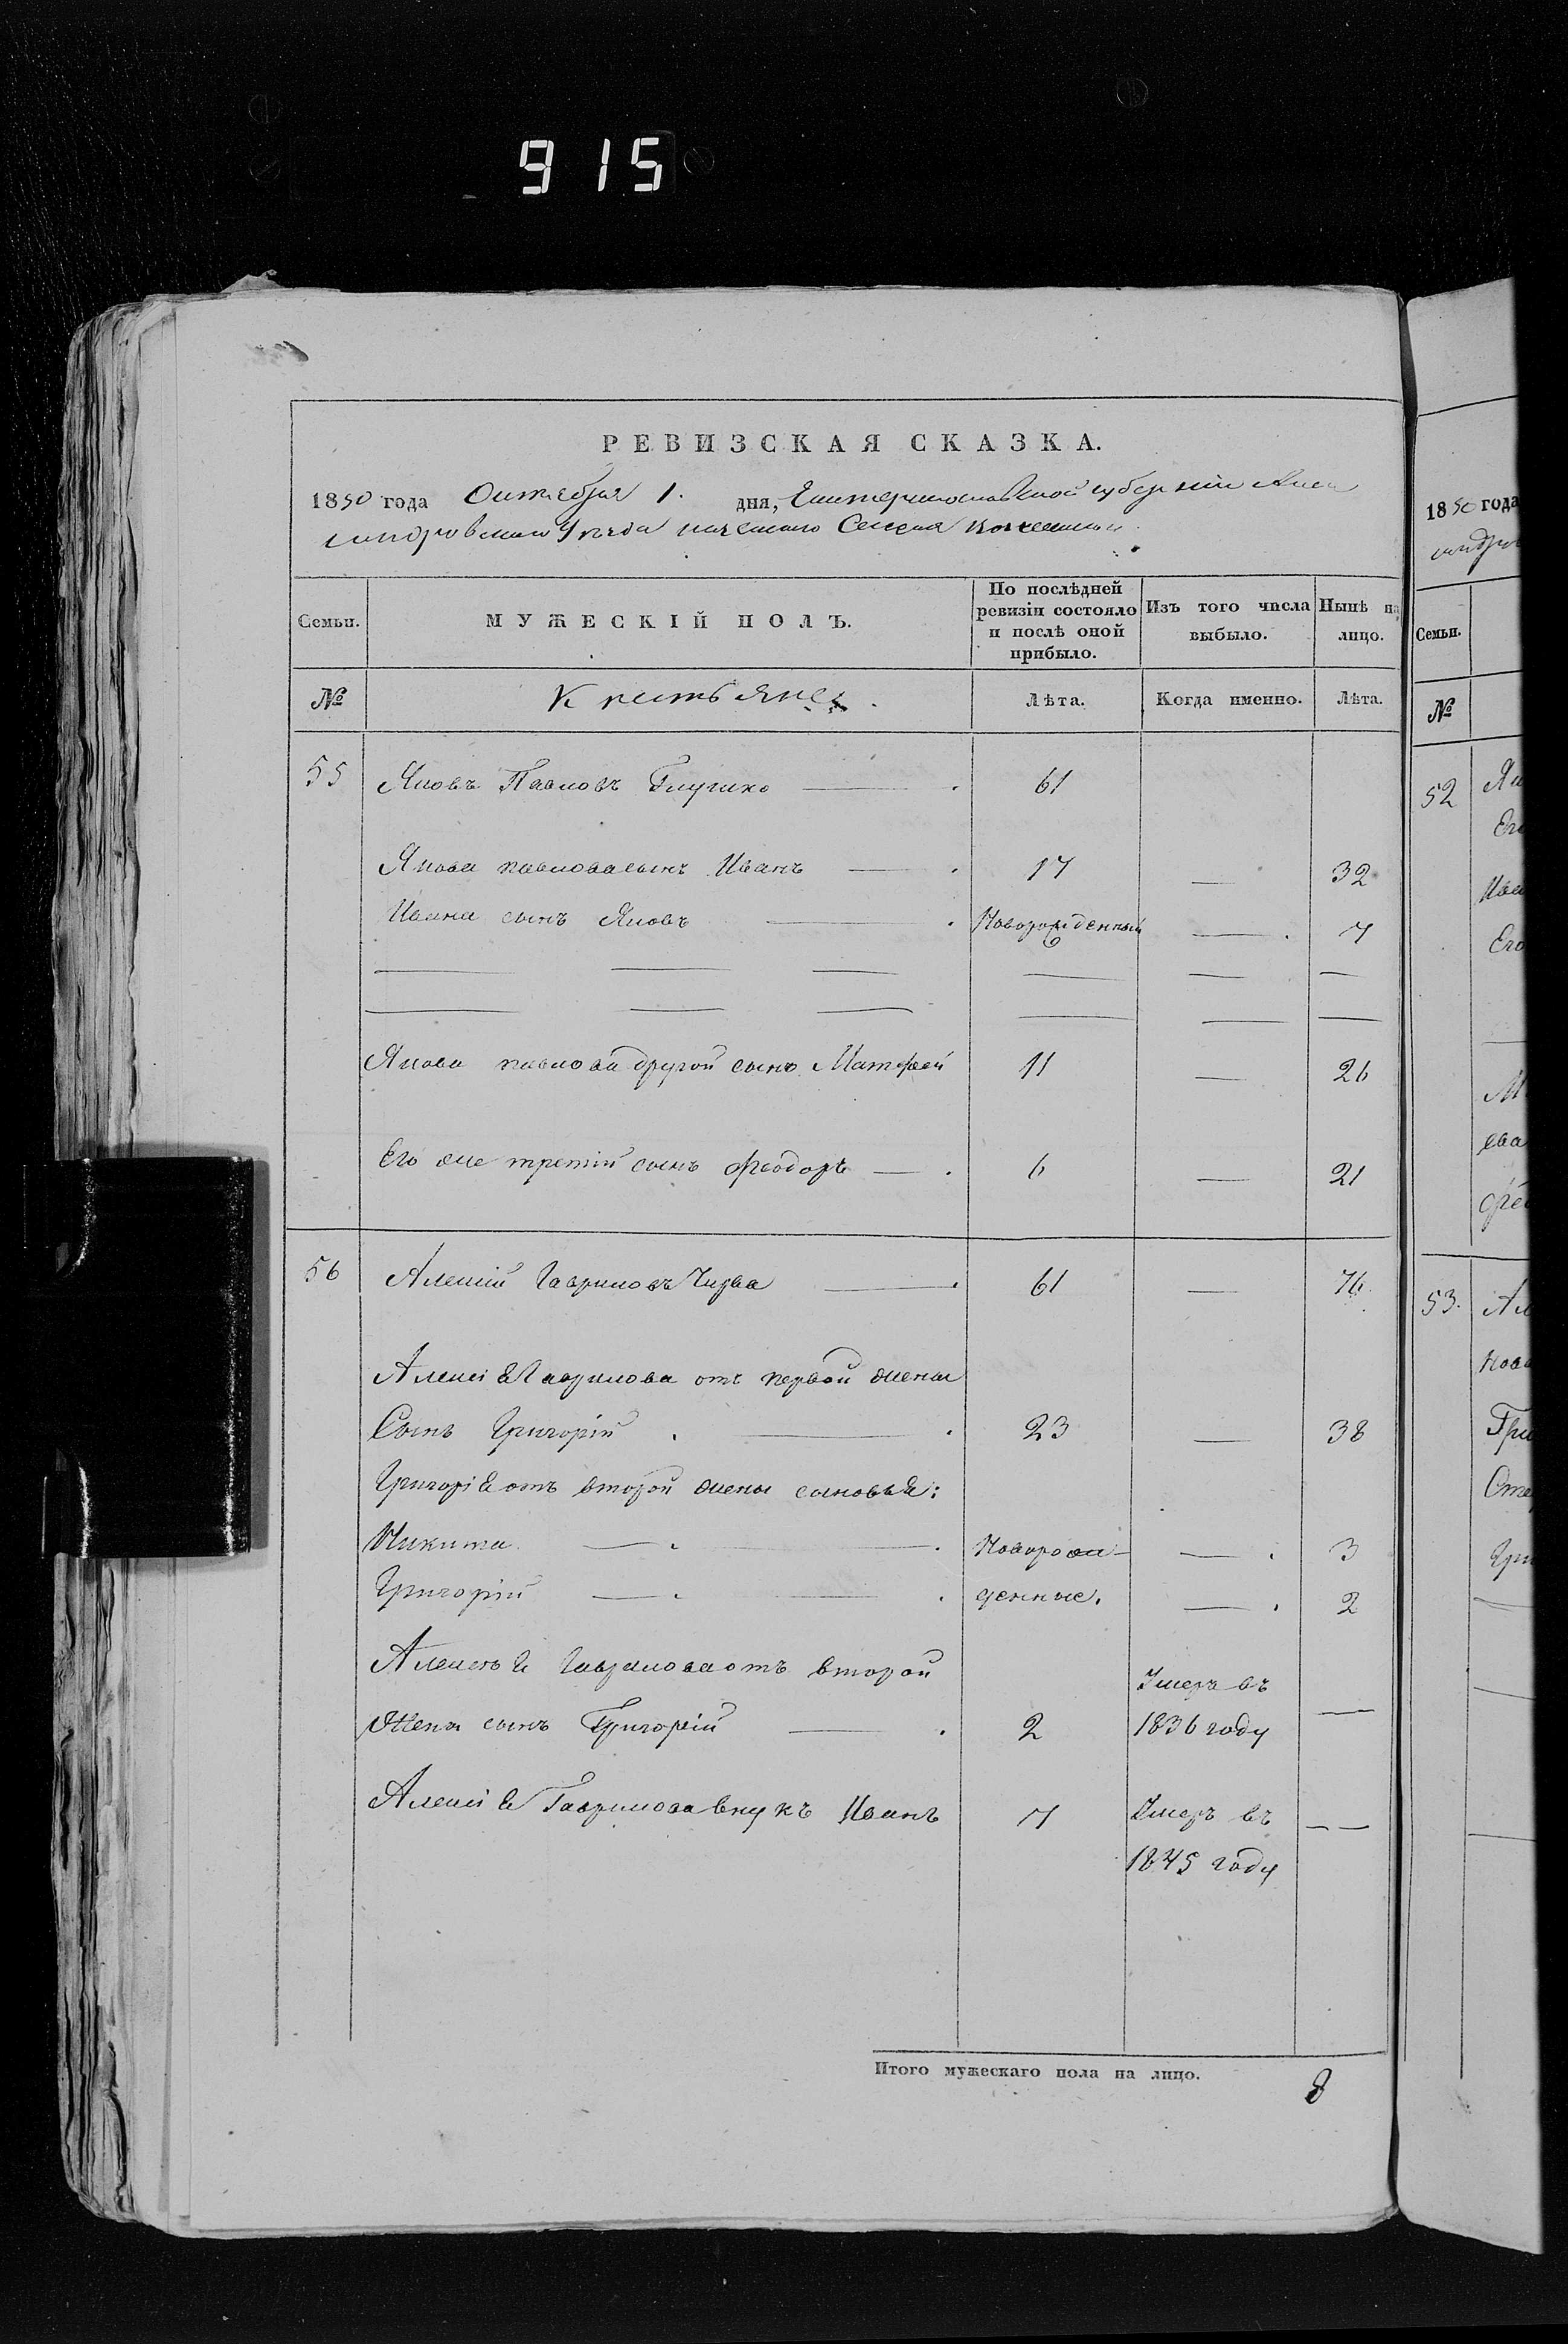 915
РЕВИЗСКАЯ СКАЗКА.
1850 года Октября 1. дня, Екатеринославской губерніи Алек
сандровскаго Уѣзда казеннаго Селенія
Семьи.
МУЖЕСКІЙ ПОЛЪ.
По послѣдней ревизіи состояло и послѣ оной прибыло.
Изъ того числа выбыло.
Нынѣ на лицо.
№
Крестьяне.
Лѣта.
Когда именно.
Лѣта.
55 Яковъ Павловъ 61
Якова павлова сынъ Иванъ 17 — 32
Ивана сынъ Яковъ Новорожденный — 7
Якова павлова другой сынъ Матфей 11 — 26
Его же третій сынъ Феодоръ 6 — 21
56 Алексій Гавриловъ Чирва 61 — 76
Алексія Гаврилова отъ первой жены
Сынъ Григорій 23 — 38
Григорія отъ второй жены сыновья:
Никита Новорож- — 3
Григорій денные. — 2
Алексѣя Гаврилова отъ второй Умеръ въ
Жены сынъ Григорій 2 1836 году —
Алексія Гаврилова внукъ Иванъ 7 Умеръ въ — —
1845 году
Итого мужескаго пола на лицо. 8
1850 года
Семьи.
№
52
Его
Его
53.